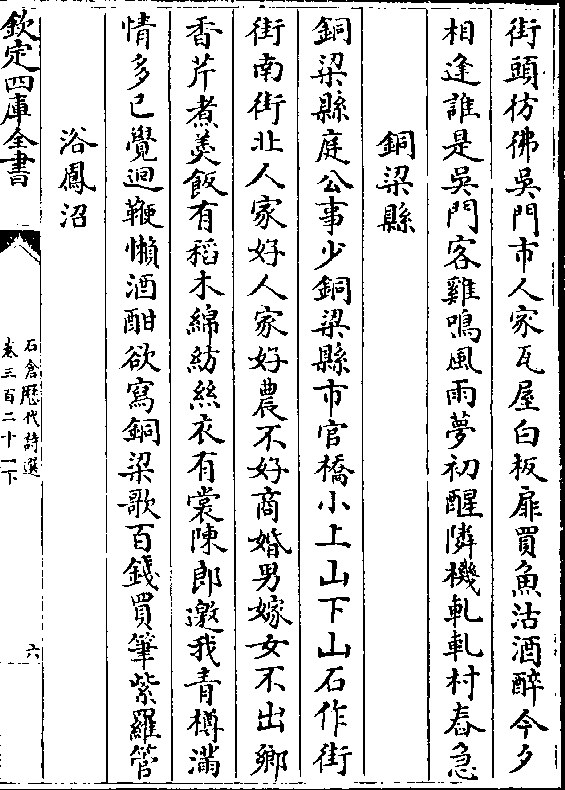 街頭彷彿吳門市人家瓦屋白板扉買魚沽酒醉今夕
相逢誰是吳門客雞鳴風雨夢初醒隣機軋軋村舂急
銅梁縣
銅梁縣庭公事少銅梁縣市官橋小上山下山石作街
街南街北人家好人家好農不好商婚男嫁女不出鄉
香芹煮羮飯有稻木綿紡絲衣有裳陳郎邀我青樽滿
情多已覺迴鞭懶酒酣欲寫銅梁歌百錢買筆紫羅管
浴鳳沼
欽定四庫全書
石倉歷代詩選
卷三百二十一下
六